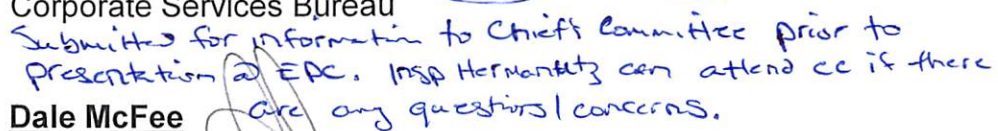 Corporate Services Bureau
Submitted for information to Chief's Committee prior to
presentation @ EPC. Insp Hermanutz can attend cc if there
Dale McFee are any questions/concerns.